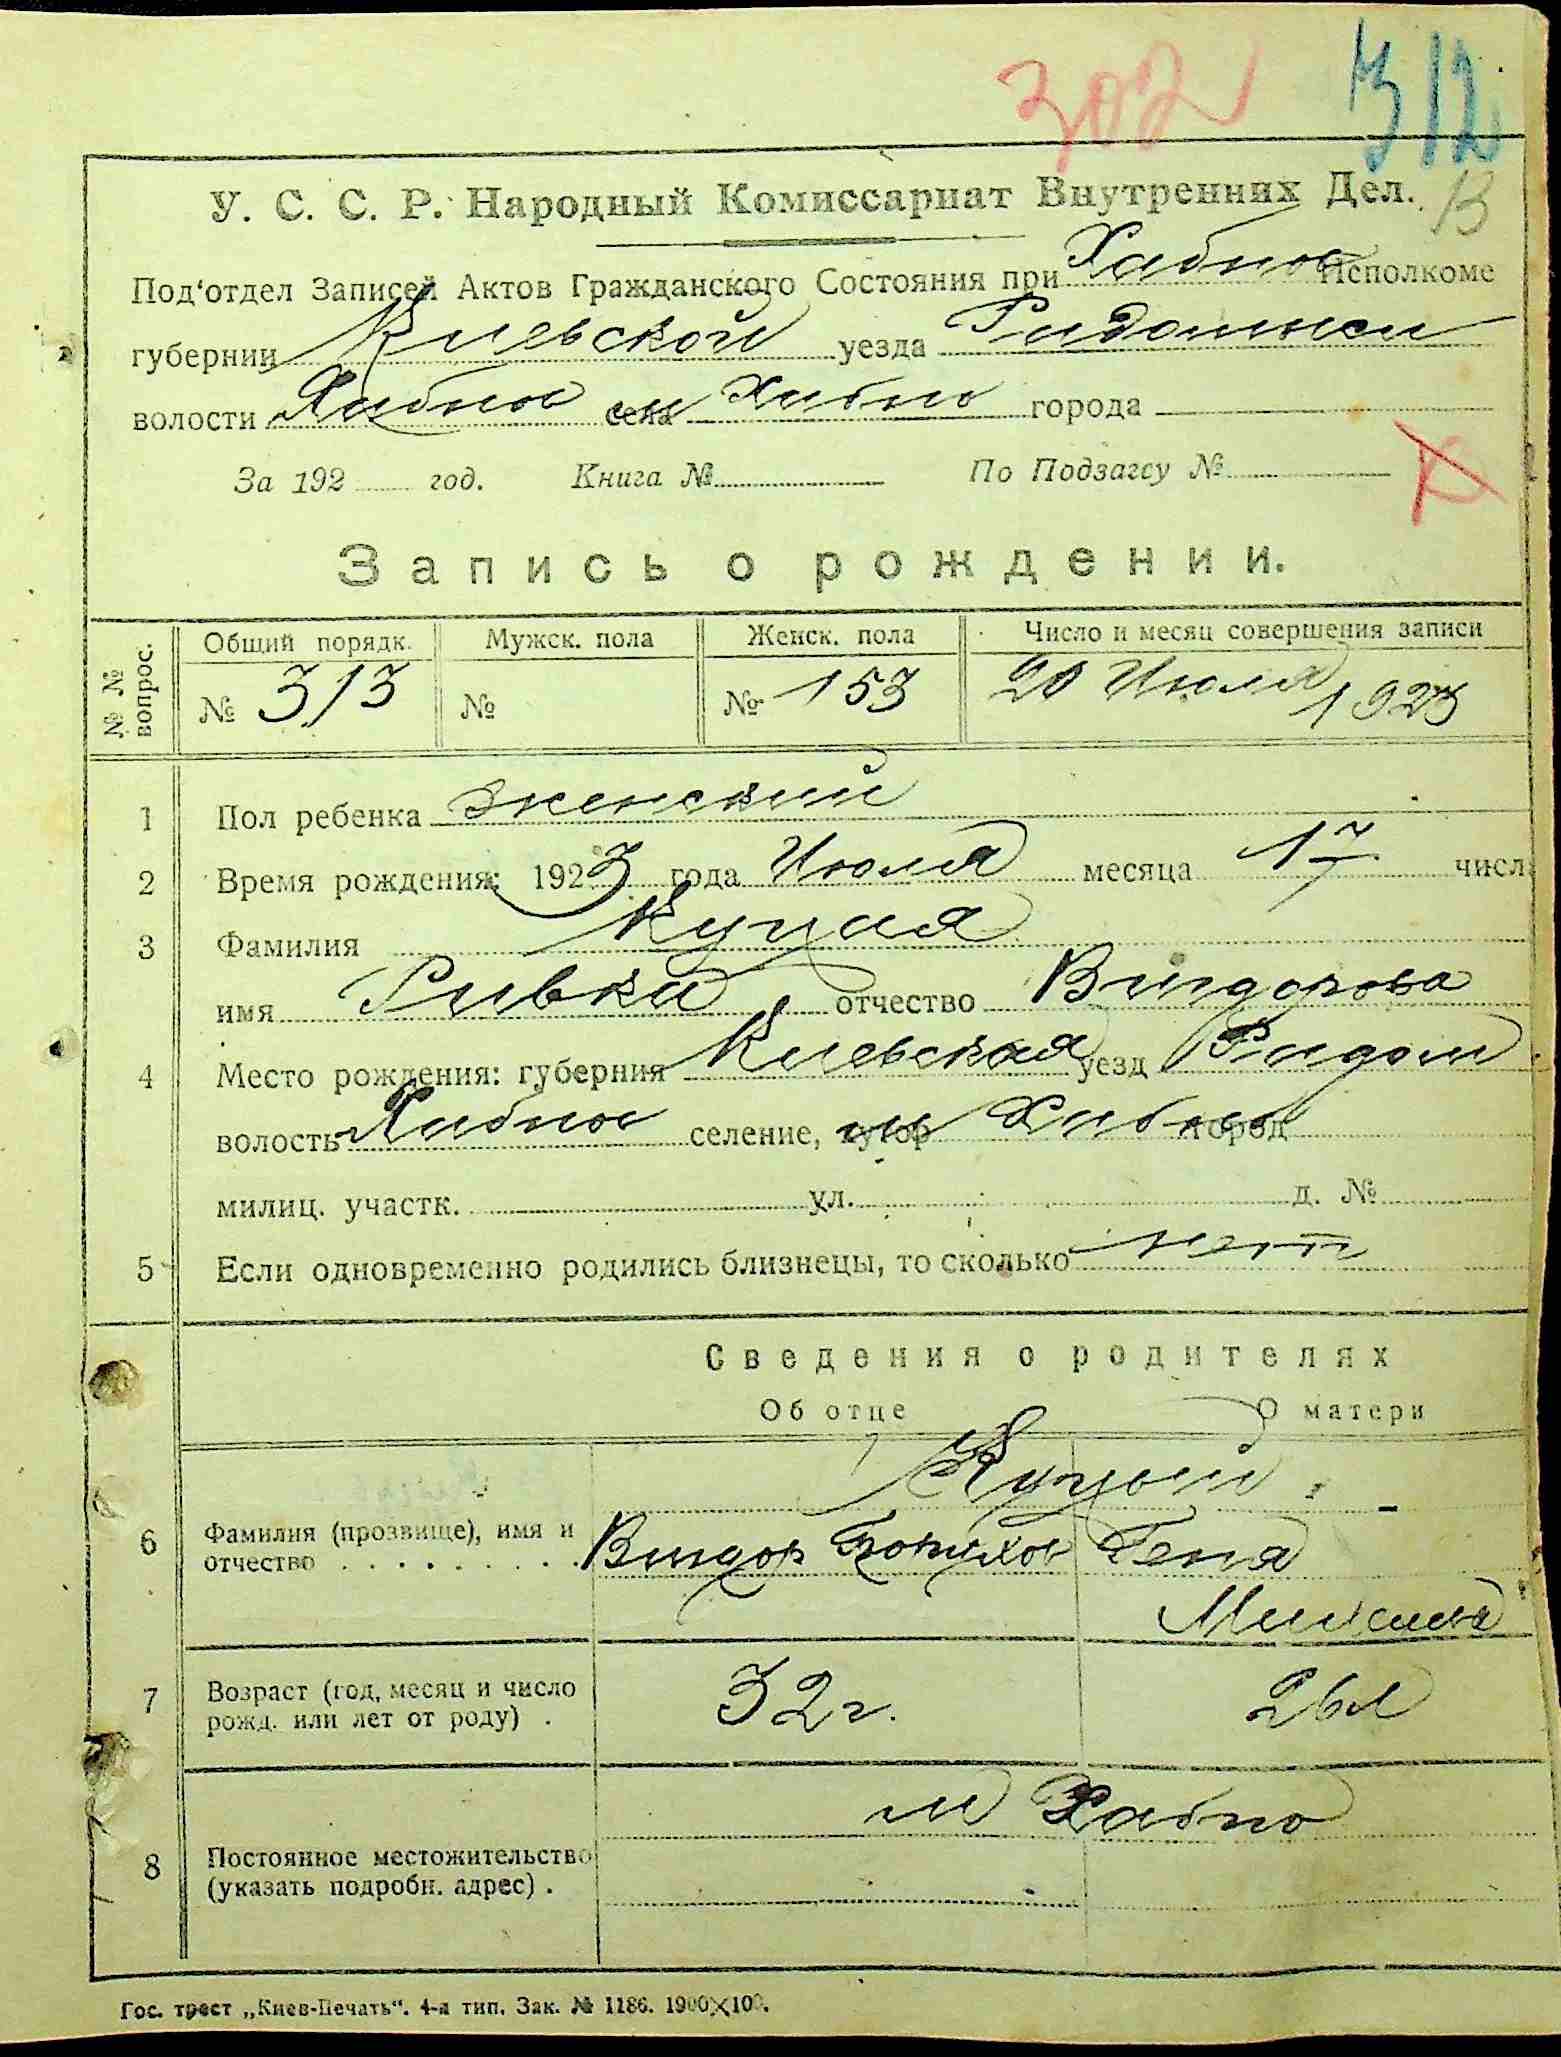 302 312
У. С. С. Р. Народный Комиссариат Внутренних Дел. 13
Под‘отдел Записей Актов Гражданского Состояния при Хабное Исполкоме
губернии Киевской уезда Радомысл
волости Хабное села м Хабно города
За 192 год. Книга № По Подзагсу №
Запись о рождении.
№ № вопрос. Общий порядк. Мужск. пола Женск. пола Число и месяц совершения записи
№ 313 № № 153 20 Июля 1923
1 Пол ребенка женский
2 Время рождения: 1923 года Июля месяца 17 числа
3 Фамилия Куцая
имя Ривка отчество Вигдорова
4 Место рождения: губерния Киевская уезд Радом
волость Хабное селение, хутор м Хабное город
милиц. участк. ул. д. №
5 Если одновременно родились близнецы, то сколько нет
Сведения о родителях
Об отце О матери
Куцый
6 Фамилия (прозвище), имя и
отчество . . . . . . . . . Вигдор Борухов Геня
7 Возраст (год, месяц и число
рожд. или лет от роду) . 32 г. 26 л
м Хабно
8 Постоянное местожительство
(указать подробн. адрес) .
Гос. трест „Киев-Печать“. 4-я тип. Зак. № 1186. 1900×100.